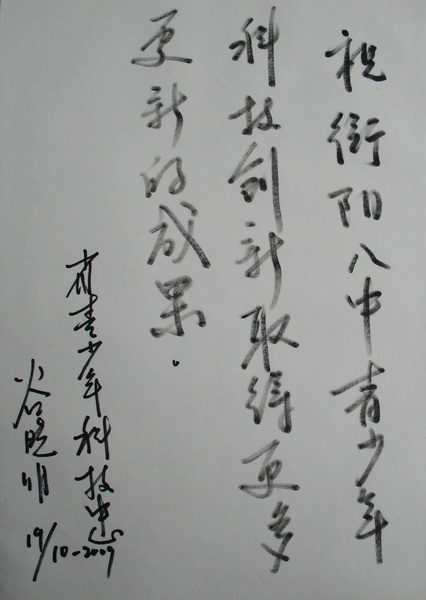 祝衡阳八中青少年
科技创新取得更多
更新的成果.
省青少年科技中心
谷晓明
19/10-2009